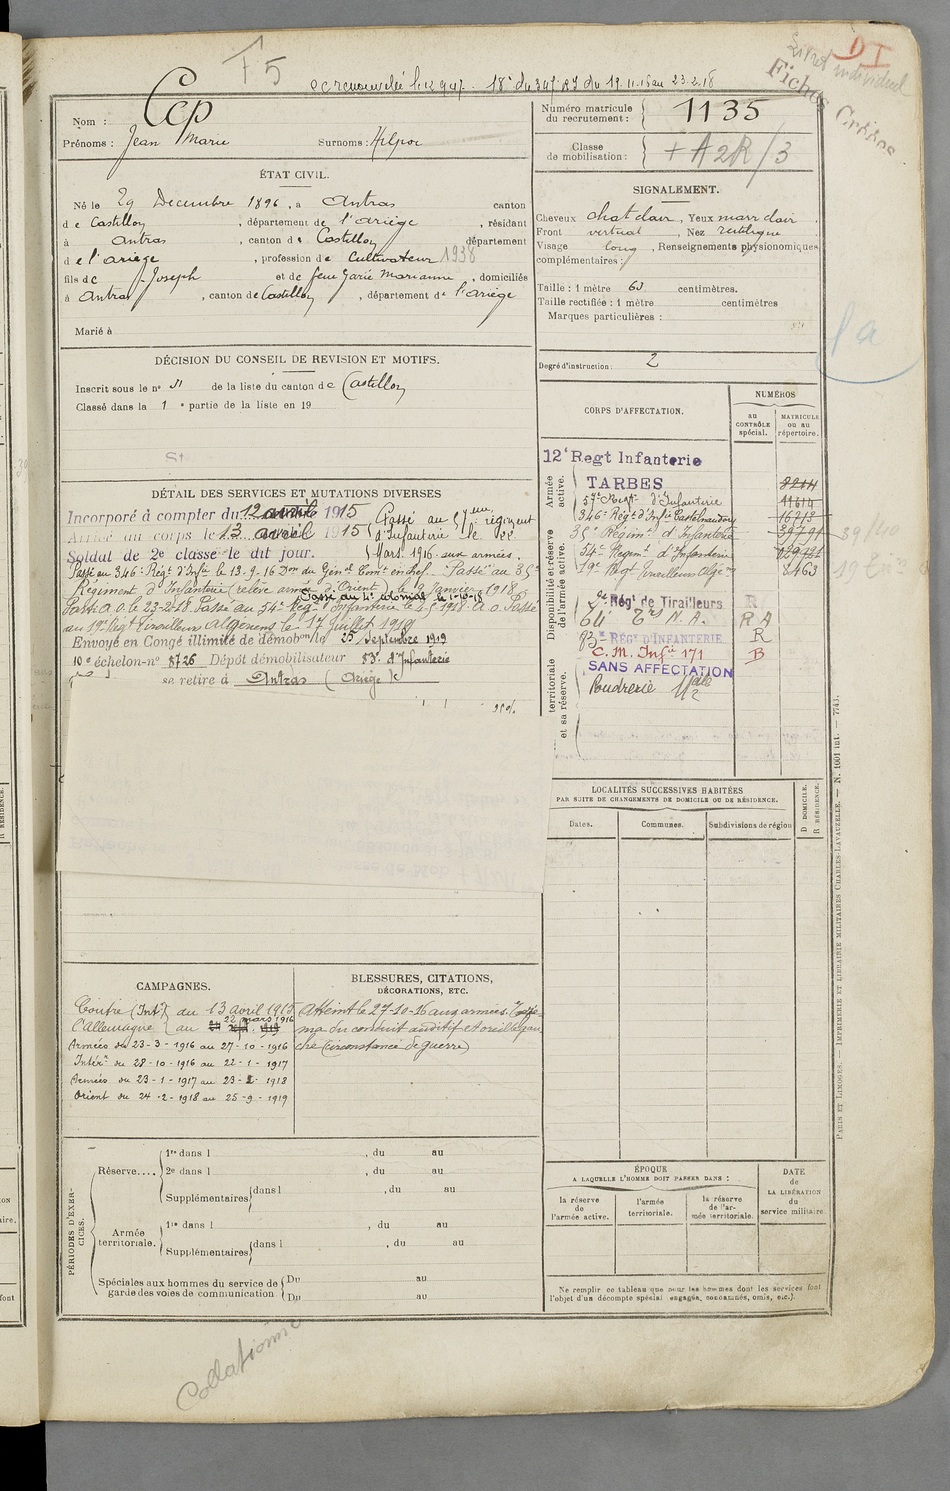 F5
18e du 347 RI du 19.11.16 au 23.2.18
DI
Livret individuel
Fiches
Nom : Cep
Prénoms : Jean Marie Surnoms :
Numéro matricule du recrutement : 1135
Classe de mobilisation : + A2R/3
ÉTAT CIVIL.
Né le 29 Decembre 1896, à Antras canton
de Castillon, département de l'ariège, résidant
à Antras, canton de Castillon département
de l'ariège, profession de Cultivateur 1938
fils de Joseph et de feue Garié Marianne, domiciliés
à Antras, canton de Castillon, département de l'ariège
Marié à
SIGNALEMENT.
Cheveux chat clair, Yeux marr clair,
Front vertical, Nez rectiligne
Visage long, Renseignements physionomiques
complémentaires :
Taille : 1 mètre 63 centimètres.
Taille rectifiée : 1 mètre centimètres
Marques particulières :
Degré d'instruction : 2
DÉCISION DU CONSEIL DE REVISION ET MOTIFS.
Inscrit sous le n° 11 de la liste du canton de Castillon
Classé dans la 1e partie de la liste en 19
DÉTAIL DES SERVICES ET MUTATIONS DIVERSES
Incorporé à compter du 12 avril 1915
Arrivé au corps le 13 avril 1915
Soldat de 2e classe le dit jour.
Passé au 57eme régiment
d'Infanterie le 22
Mars 1916 aux armées.
Passé au 346e Régt d'Infie le 13-9-16 Don du Génal Comt en chef. Passé au 35e
Régiment d'Infanterie (relève armée d'Orient) le 9 Janvier 1918
Passé au 4e colonial le 1-5-18
Passé A.O. le 23-2-18 Passé au 54e Régt Infanterie le 1-5-1918 A.O. Passé
au 19e Régt Tirailleurs Algériens le 17 Juillet 1918
Envoyé en Congé illimité de démobon le 25 Septembre 1919
10e échelon-n° 8726 Dépôt démobilisateur 83e d'Infanterie
se retire à Antras (Ariège)
CORPS D'AFFECTATION.
NUMÉROS
au CONTRÔLE spécial.
MATRICULE ou au répertoire.
Armée active.
Disponibilité et réserve de l'armée active.
territoriale et sa réserve.
12e Regt Infanterie
TARBES
57e Regt d'Infanterie
346e Régt d'Infie Castelnaudary
35e Régimt d'Infanterie
54e Regimt d'Infanterie
19e Regt Tirailleurs Algens 8463
Régt de Tirailleurs R
64 Trs N.A. R A
83e RÉGt D'INFANTERIE R
C.M. Infie 171 B
SANS AFFECTATION
Poudrerie Nale
39/140
LOCALITÉS SUCCESSIVES HABITÉES
PAR SUITE DE CHANGEMENTS DE DOMICILE OU DE RÉSIDENCE.
Dates. Communes. Subdivisions de région
D DOMICILE.
R RÉSIDENCE.
CAMPAGNES.
Contre (Intr) du 13 avril 1915
l'Allemagne au 22 mars 1916
Armées du 23-3-1916 au 27-10-1916
Intérr du 28-10-1916 au 22-1-1917
Armées du 23-1-1917 au 23-2-1918
Orient du 24-2-1918 au 25-9-1919
BLESSURES, CITATIONS,
DÉCORATIONS, ETC.
Atteint le 27-10-16 aux armées Trauma
du conduit auditif et oreille gauche
(circonstance de guerre)
PÉRIODES D'EXERCICES.
Réserve....
1re dans l , du au
2e dans l , du au
Supplémentaires dans l , du au
Armée territoriale.
1re dans l , du au
Supplémentaires dans l , du au
Spéciales aux hommes du service de garde des voies de communication
Du au
Du au
ÉPOQUE
A LAQUELLE L'HOMME DOIT PASSER DANS :
la réserve de l'armée active.
l'armée territoriale.
la réserve de l'armée territoriale.
DATE de LA LIBÉRATION du service militaire.
Ne remplir ce tableau que pour les hommes dont les services font
l'objet d'un décompte spécial (engagés, condamnés, omis, etc.).
PARIS ET LIMOGES. — IMPRIMERIE ET LIBRAIRIE MILITAIRES CHARLES-LAVAUZELLE. — N. 1001 int. — 7743.
Collationné